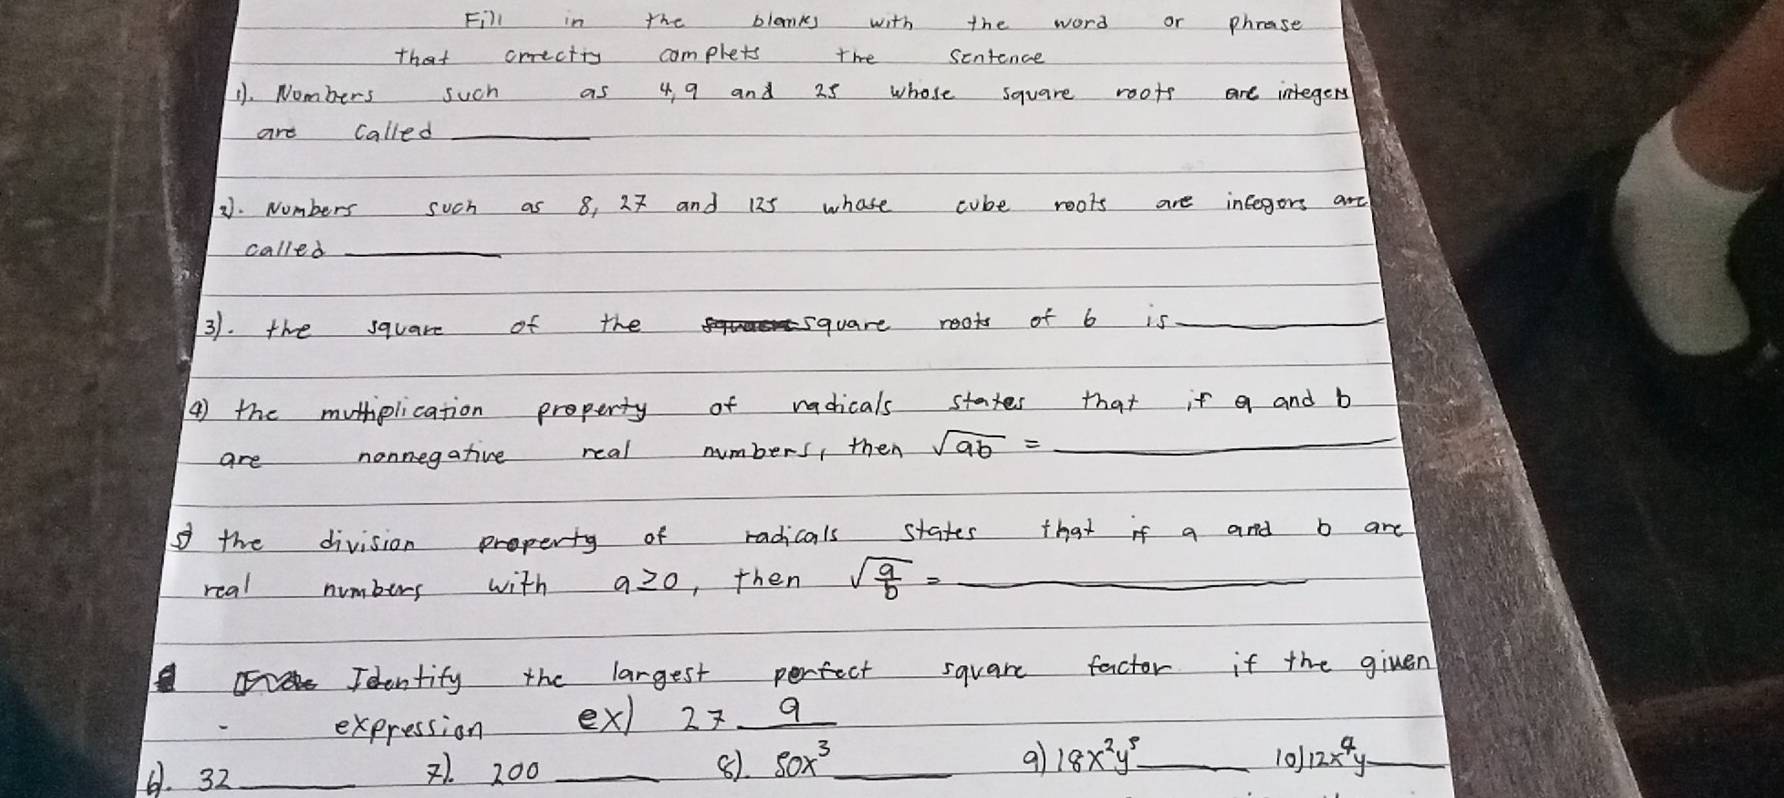 Fill in the blanks with the word or phrase
that correctly complets the sentence
1). Numbers such as 4, 9 and 25 whose square roots are integers
are called ______
2). Numbers such as 8, 27 and 125 whose cube roots are integers are
called ______
3). the square of the square roots of 6 is ______
4) the multiplication property of radicals states that if a and b
are nonnegative real numbers, then √ab = ______
5) the division property of radicals states that if a and b are
real numbers with a≥0, then √a/b = ______
Identify the largest perfect square factor if the given
expression ex) 27 9
6). 32 ______ 7). 200 ______ 8). 50x³ ______ 9) 18x²y⁵ ______ 10) 12x⁴y ______